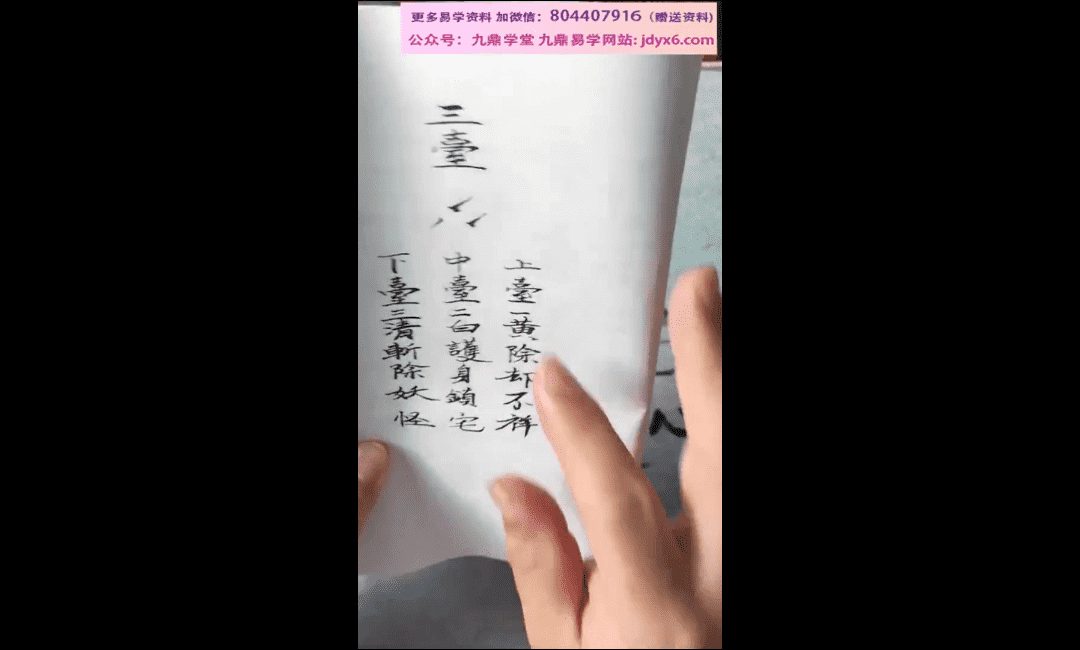 更多易学资料 加微信：804407916（赠送资料)
公众号：九鼎学堂 九鼎易学网站: jdyx6.com
三臺
上臺一黄除却不祥
中臺二白護身鎮宅
下臺三清斬除妖怪